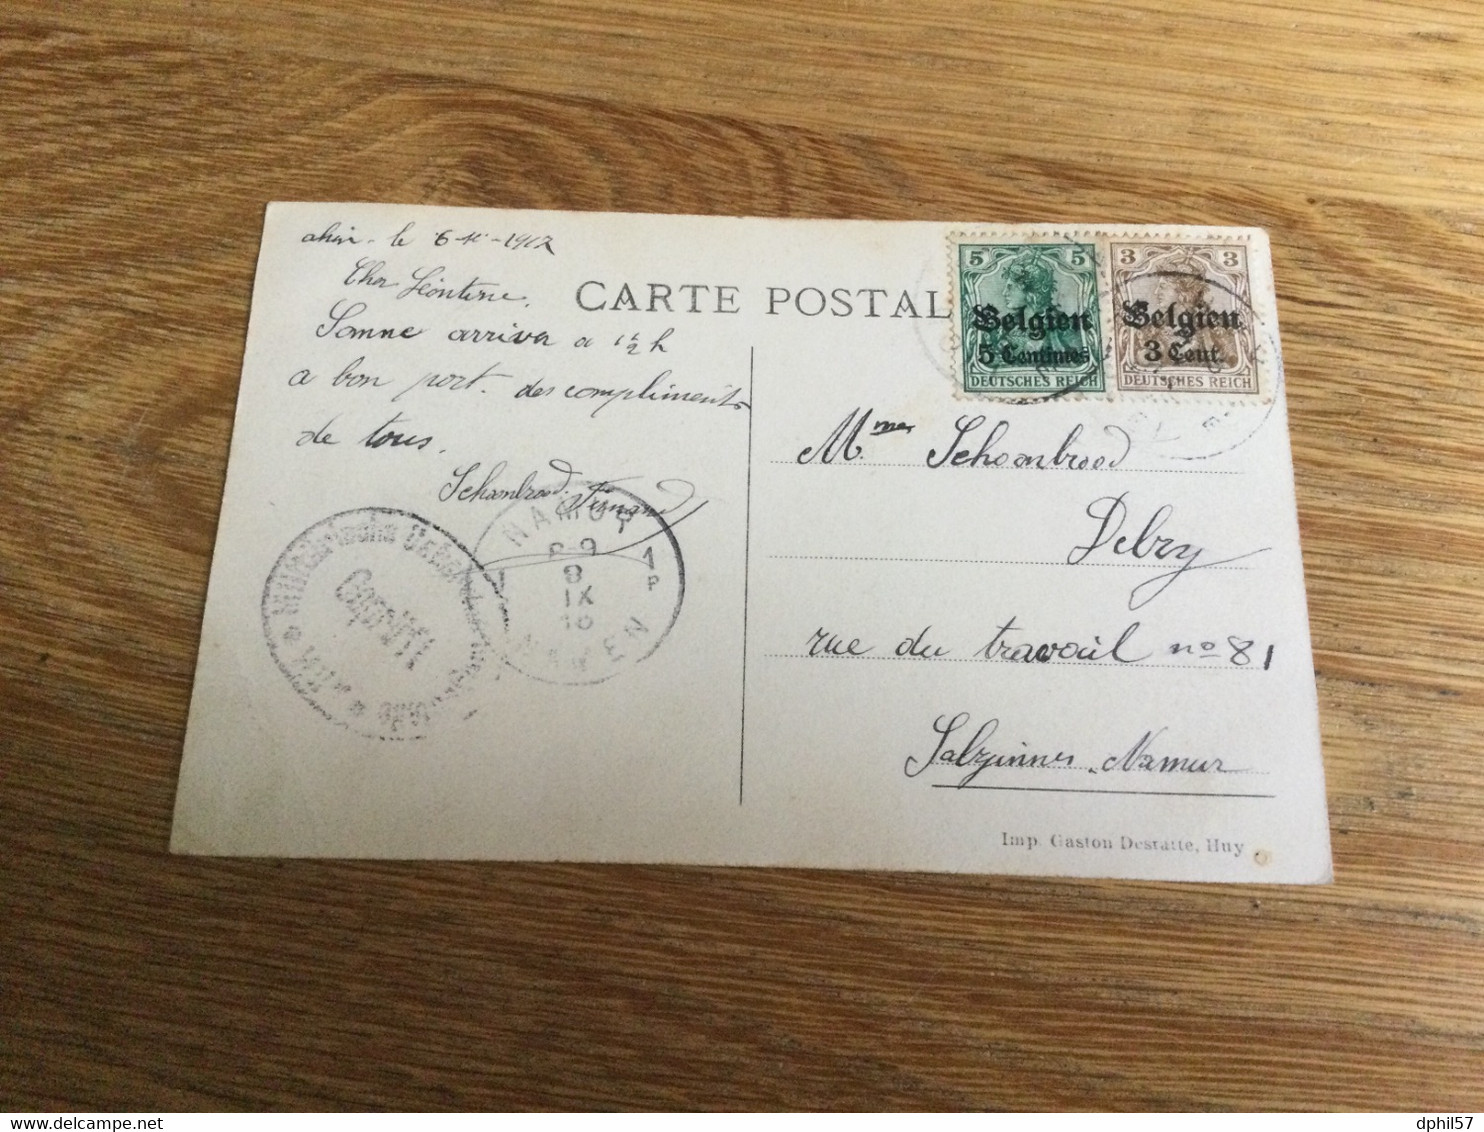 ahin - le 6 - 1917
Cher Léontine.
Somme arriver a 1 1/2 h
a bon port. des compliments
de tous.
Schoonbrood. Fernand
CARTE POSTAL
5 5
Belgien
5 Centimes
DEUTSCHES REICH
3 3
Belgien
3 Cent.
DEUTSCHES REICH
Mme Schoonbrood
Debry
rue du travail no 81
Salzinnes. Namur
NAMUR 1a
8
IX
16
NAMEN
Militärische
Geprüft
Imp. Gaston Destatte, Huy
delcampe.net
dphil57